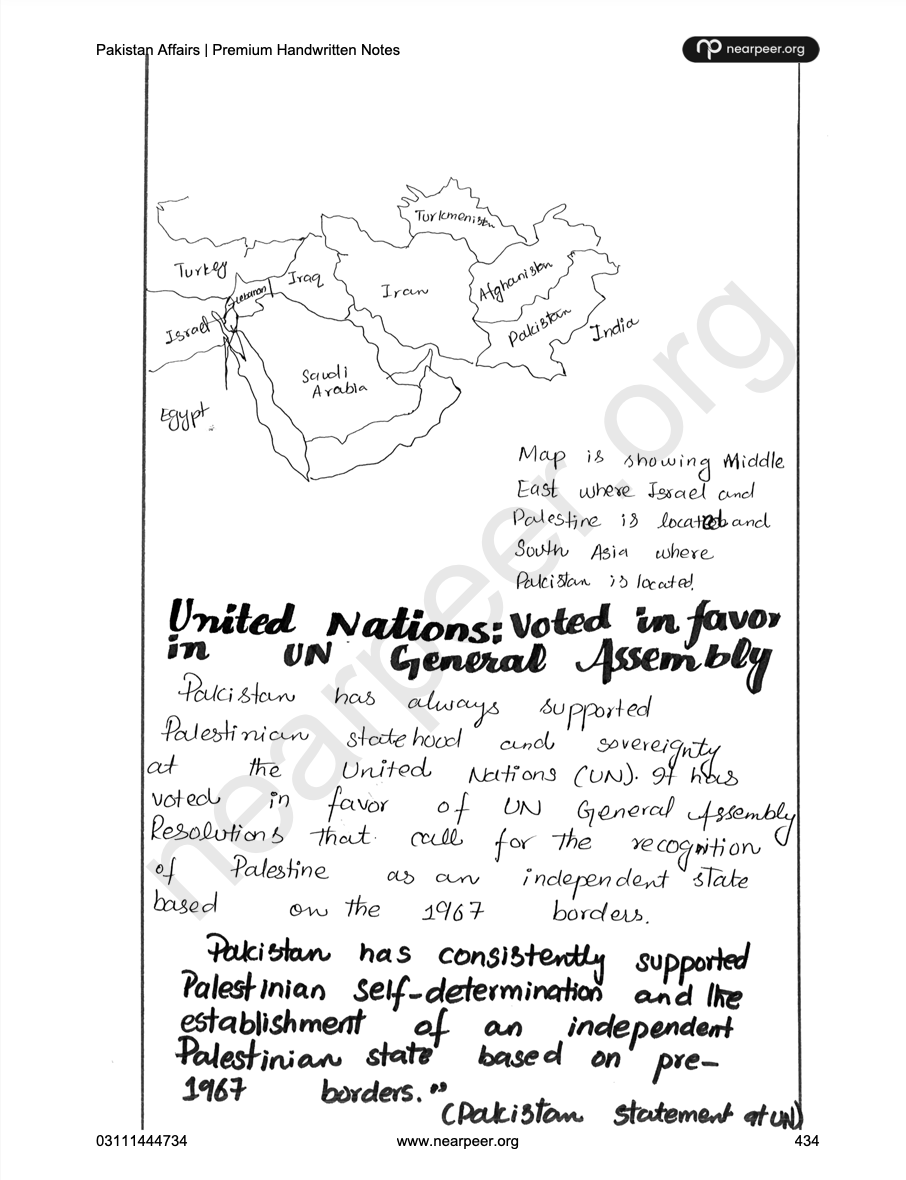 Pakistan Affairs | Premium Handwritten Notes
nearpeer.org
Turkmenistan
Turkey
Iraq
Lebanon
Iran
Afghanistan
Israel
Pakistan
India
Saudi
Arabia
Egypt
Map is showing Middle
East where Israel and
Palestine is located and
South Asia where
Pakistan is located.
United Nations: Voted in favor
in UN General Assembly
Pakistan has always supported
Palestinian statehood and sovereignty
at the United Nations (UN). It has
voted in favor of UN General Assembly
Resolutions that call for the recognition
of Palestine as an independent state
based on the 1967 borders.
Pakistan has consistently supported
Palestinian self-determination and the
establishment of an independent
Palestinian state based on pre-
1967 borders."
(Pakistan statement at UN)
nearpeer.org
03111444734
www.nearpeer.org
434